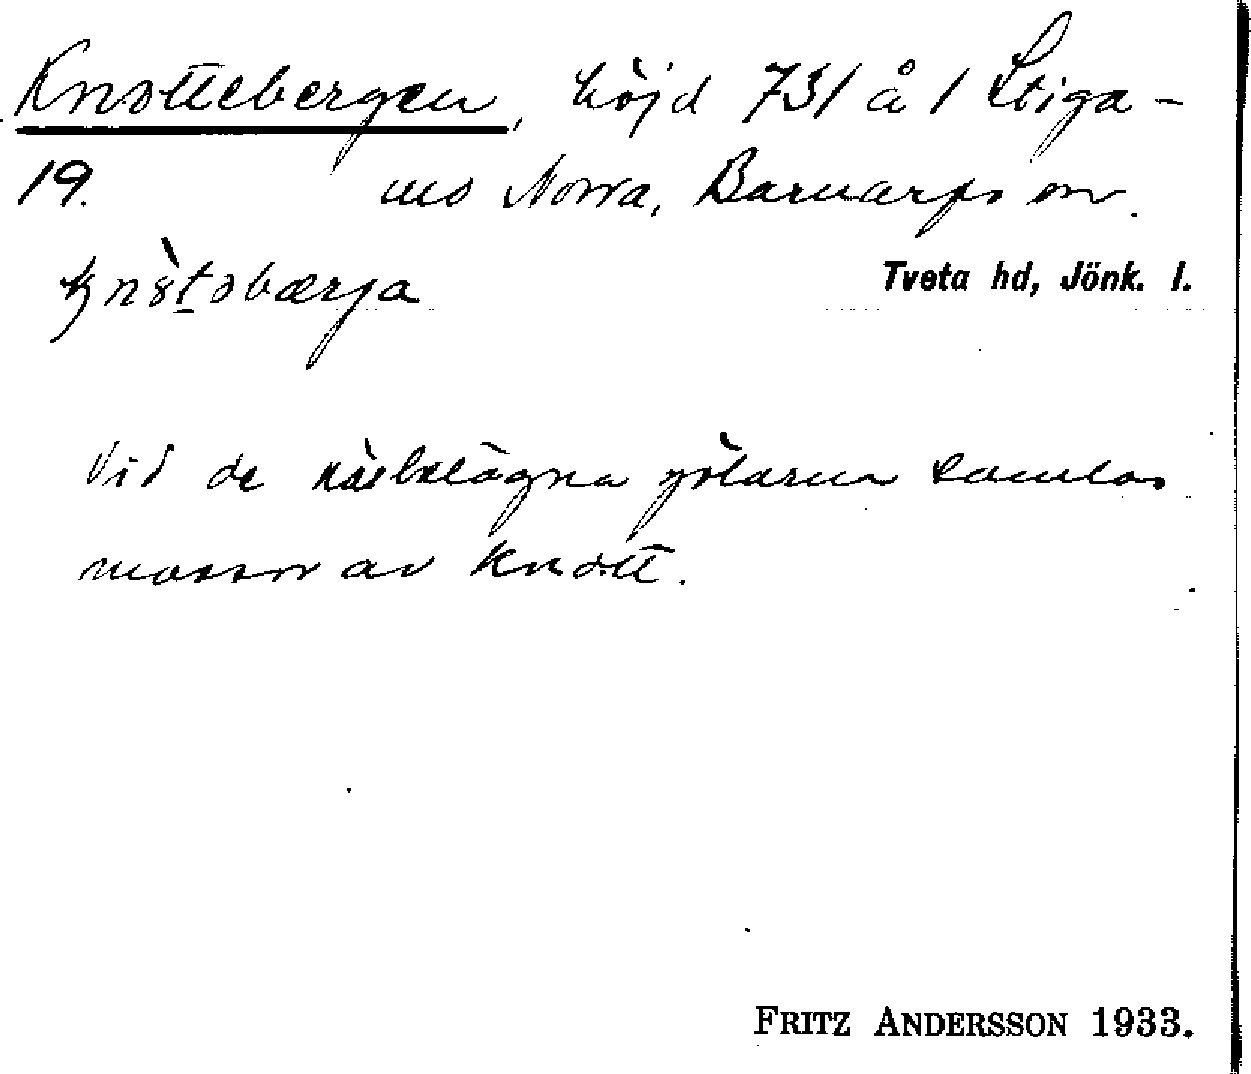 Knottebergen, höjd 731 å 1 Stiga-
19. mo Norra, Barnarps sn.
Tveta hd, Jönk. l.
Vid de närbelägna gölarna samlas
massor av knott.
FRITZ ANDERSSON 1933.